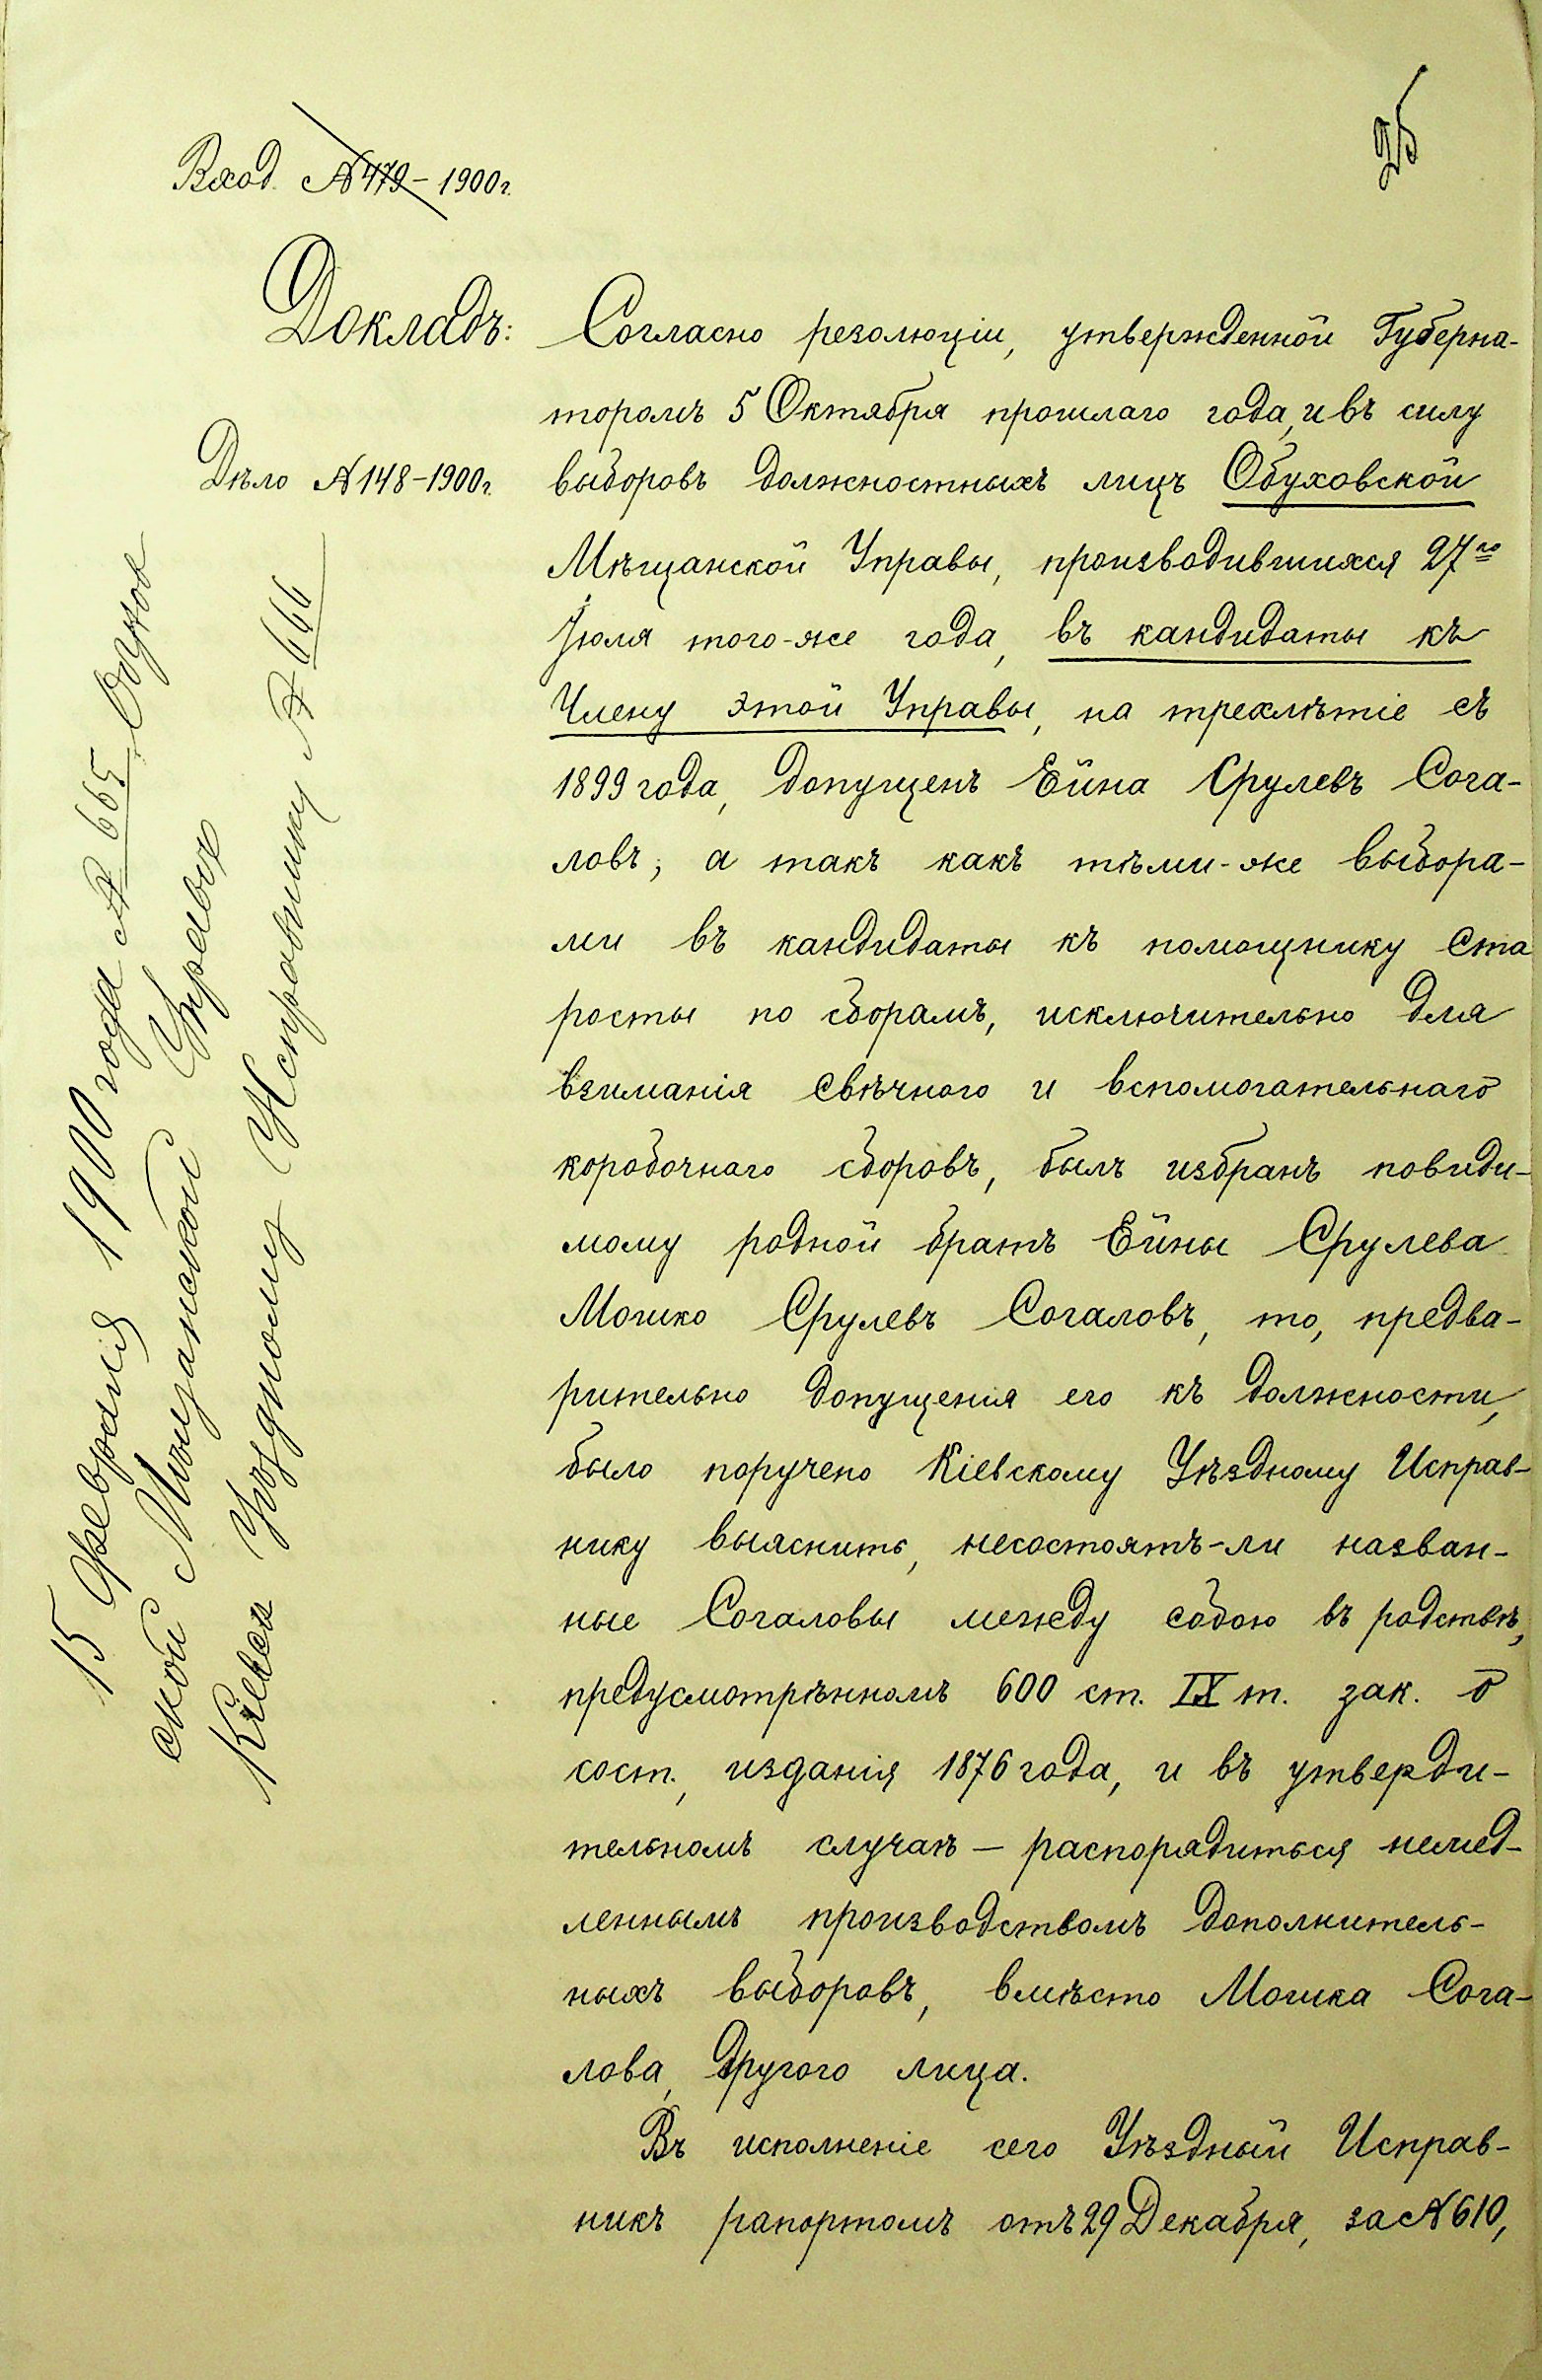 25
Вход. №479-1900г.
Докладъ:
Дѣло №148-1900г.
Согласно резолюціи, утвержденной Губерна-
торомъ 5 Октября прошлаго года, и въ силу
выборовъ должностныхъ лицъ Обуховской
Мѣщанской Управы, производившихся 27го
Іюля того-же года, въ кандидаты къ
Члену этой Управы, на трехлѣтіе съ
1899 года, допущенъ Ейна Срулевъ Сога-
ловъ; а такъ какъ тѣми-же выбора-
ми въ кандидаты къ помощнику Ста
росты по сборамъ, исключительно для
взиманія свѣчного и вспомогательнаго
коробочнаго сборовъ, былъ избранъ повиди-
мому родной братъ Ейны Срулева
Мошко Срулевъ Согаловъ, то, предва-
рительно допущенія его къ должности,
было поручено Кіевскому Уѣздному Исправ-
нику выяснить, несостоятъ-ли назван-
ные Согаловы между собою въ родствѣ,
предусмотрѣнномъ 600 ст. IX т. зак. о
сост., изданія 1876 года, и въ утверди-
тельномъ случаѣ — распорядиться немед-
леннымъ производствомъ дополнитель-
ныхъ выборовъ, вмѣсто Мошка Сога-
лова, другого лица.
Въ исполненіе сего Уѣздный Исправ-
никъ рапортомъ отъ 29 Декабря, за №610,
15 февраля 1900 года № 665 Обухов
ской Мѣщанской Управѣ
Кіевск Уѣздному Исправнику № 666